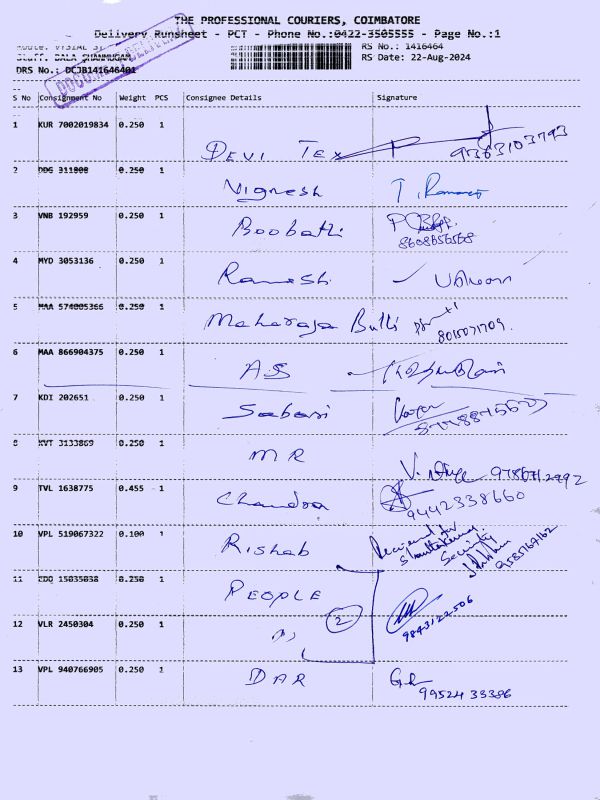 THE PROFESSIONAL COURIERS, COIMBATORE
Delivery Runsheet - PCT - Phone No.:0422-3505555 - Page No.:1
RS No.: 1416464
Staff: BALA SHANMUGAN RS Date: 22-Aug-2024
DRS No.: DCJB141646401
S No Consignment No Weight PCS Consignee Details Signature
1 KUR 7002019834 0.250 1
DEVI TEX 9363103793
2 DDG 311808 0.250 1
Vignesh
3 VNB 192959 0.250 1
Boobathi
8608656568
4 MYD 3053136 0.250 1
Ramesh
5 MAA 574005366 0.250 1
Maharaja Bulli
8015071709
6 MAA 866904375 0.250 1
AS
7 KDI 202651 0.250 1
Sabari
8 KVT 3133869 0.250 1
MR
9 TVL 1638775 0.455 1
Chandra
9442338660
10 VPL 519067322 0.100 1
Rishab
Received for
Security
11 15035038 0.250 1
PEOPLE
9843122506
12 VLR 2450304 0.250 1
2
13 VPL 940766905 0.250 1
DAR
99524 33386